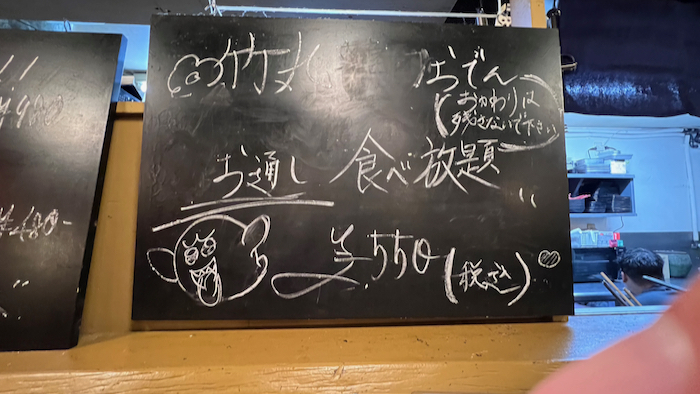 竹丸 おでん
(おかわりは
残さないで下さい)
お通し 食べ放題
¥550(税込)
¥980
¥480-